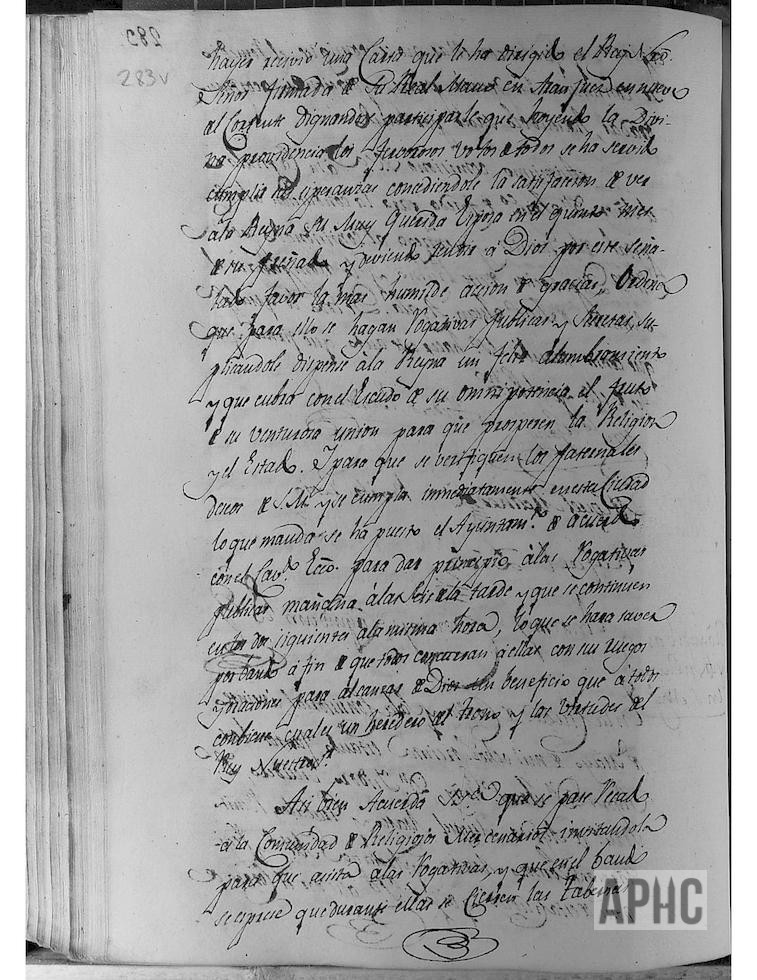 283
283v
haver recivido una Carta que le ha dirigido el Rey N. Sor.
Señor firmada de su Real Mano en Aranjuez en nueve
del Corriente dignandose participarle que hoyendo la Divi-
na providencia los fervorosos votos de todos se ha servido
cumplir sus esperanzas concediendole la satisfacion de ver
a la Reyna su Muy Querida Esposa en el quinto mes
de su preñado y deviendo rendir a Dios por este seña-
lado favor la mas humilde accion de gracias, Ordena,
que para ello se hagan Rogativas publicas y secretas, su-
plicandole dispense à la Reyna un feliz alumbramiento
y que cubra con el Escudo de su omnipotencia el fruto
de su venturosa union para que prosperen la Religion
y el Estado. Y para que se verifiquen los paternales
deseos de S.M. y se cumpla inmediatamente en esta Ciudad
lo que manda se ha puesto el Ayuntamto. de acuerdo
con el Cavdo. Ecco. para dar principio à las Rogativas
publicas mañana à las de la tarde y que se continuen
en los dos siguientes a la misma hora, lo que se hara saver
por bando à fin de que todos concurran à ellas con sus ruegos
y oraciones para alcanzar de Dios un beneficio que à todos
combiene cual es un heredero del trono y las virtudes del
Rey Nuestro Sr.
Asi bien Acuerda que se pase Recado
a la Comunidad de Religiosos Mercenarios invitandola
para que asista a las Rogativas, y que en el bando
se esprese que durante ellas se Cierren las tabernas
APHC